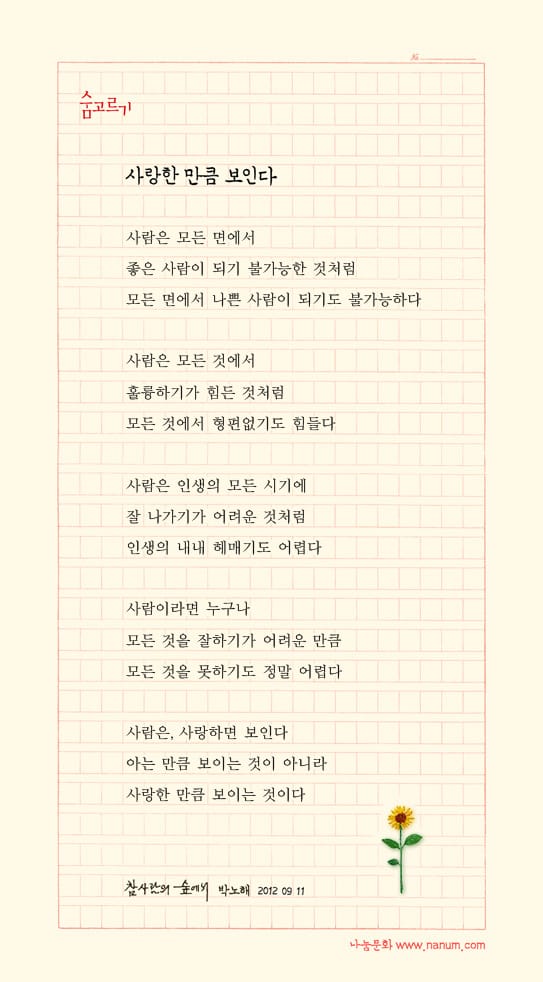 숨고르기
사랑한 만큼 보인다
사람은 모든 면에서
좋은 사람이 되기 불가능한 것처럼
모든 면에서 나쁜 사람이 되기도 불가능하다
사람은 모든 것에서
훌륭하기가 힘든 것처럼
모든 것에서 형편없기도 힘들다
사람은 인생의 모든 시기에
잘 나가기가 어려운 것처럼
인생의 내내 헤매기도 어렵다
사람이라면 누구나
모든 것을 잘하기가 어려운 만큼
모든 것을 못하기도 정말 어렵다
사람은, 사랑하면 보인다
아는 만큼 보이는 것이 아니라
사랑한 만큼 보이는 것이다
참사람의 숲에서 박노해 2012 09 11
나눔문화 www.nanum.com